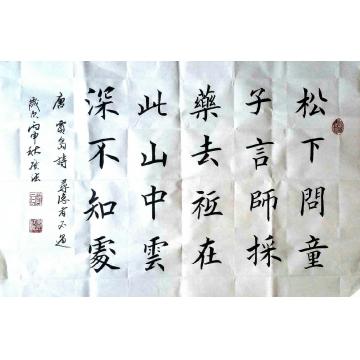 松下問童
子言師採
藥去祗在
此山中雲
深不知處
唐賈島詩尋隱者不遇
歲次丙申秋